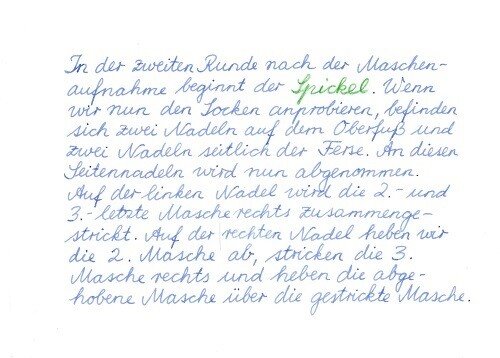 In der zweiten Runde nach der Maschen-
aufnahme beginnt der Spickel. Wenn
wir nun den Socken anprobieren, befinden
sich zwei Nadeln auf dem Oberfuß und
zwei Nadeln seitlich der Ferse. An diesen
Seitennadeln wird nun abgenommen.
Auf der linken Nadel wird die 2.- und
3.- letzte Masche rechts zusammenge-
strickt. Auf der rechten Nadel heben wir
die 2. Masche ab, stricken die 3.
Masche rechts und heben die abge-
hobene Masche über die gestrickte Masche.